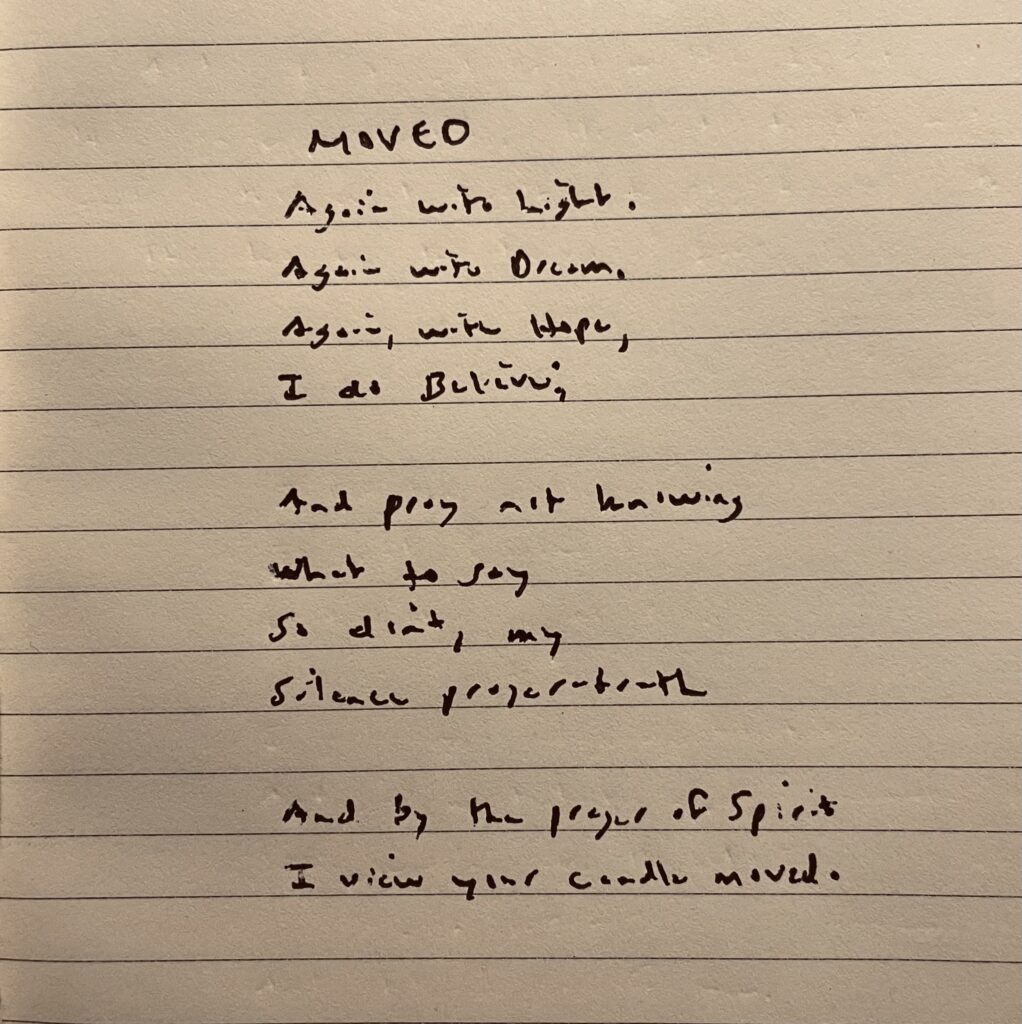 MOVED
Again with Light.
Again with Dream.
Again, with Hope,
I do Believe;
And pray not knowing
What to say
So didn't, my
Silence prayer-truth
And by the prayer of Spirit
I view your candle moved.